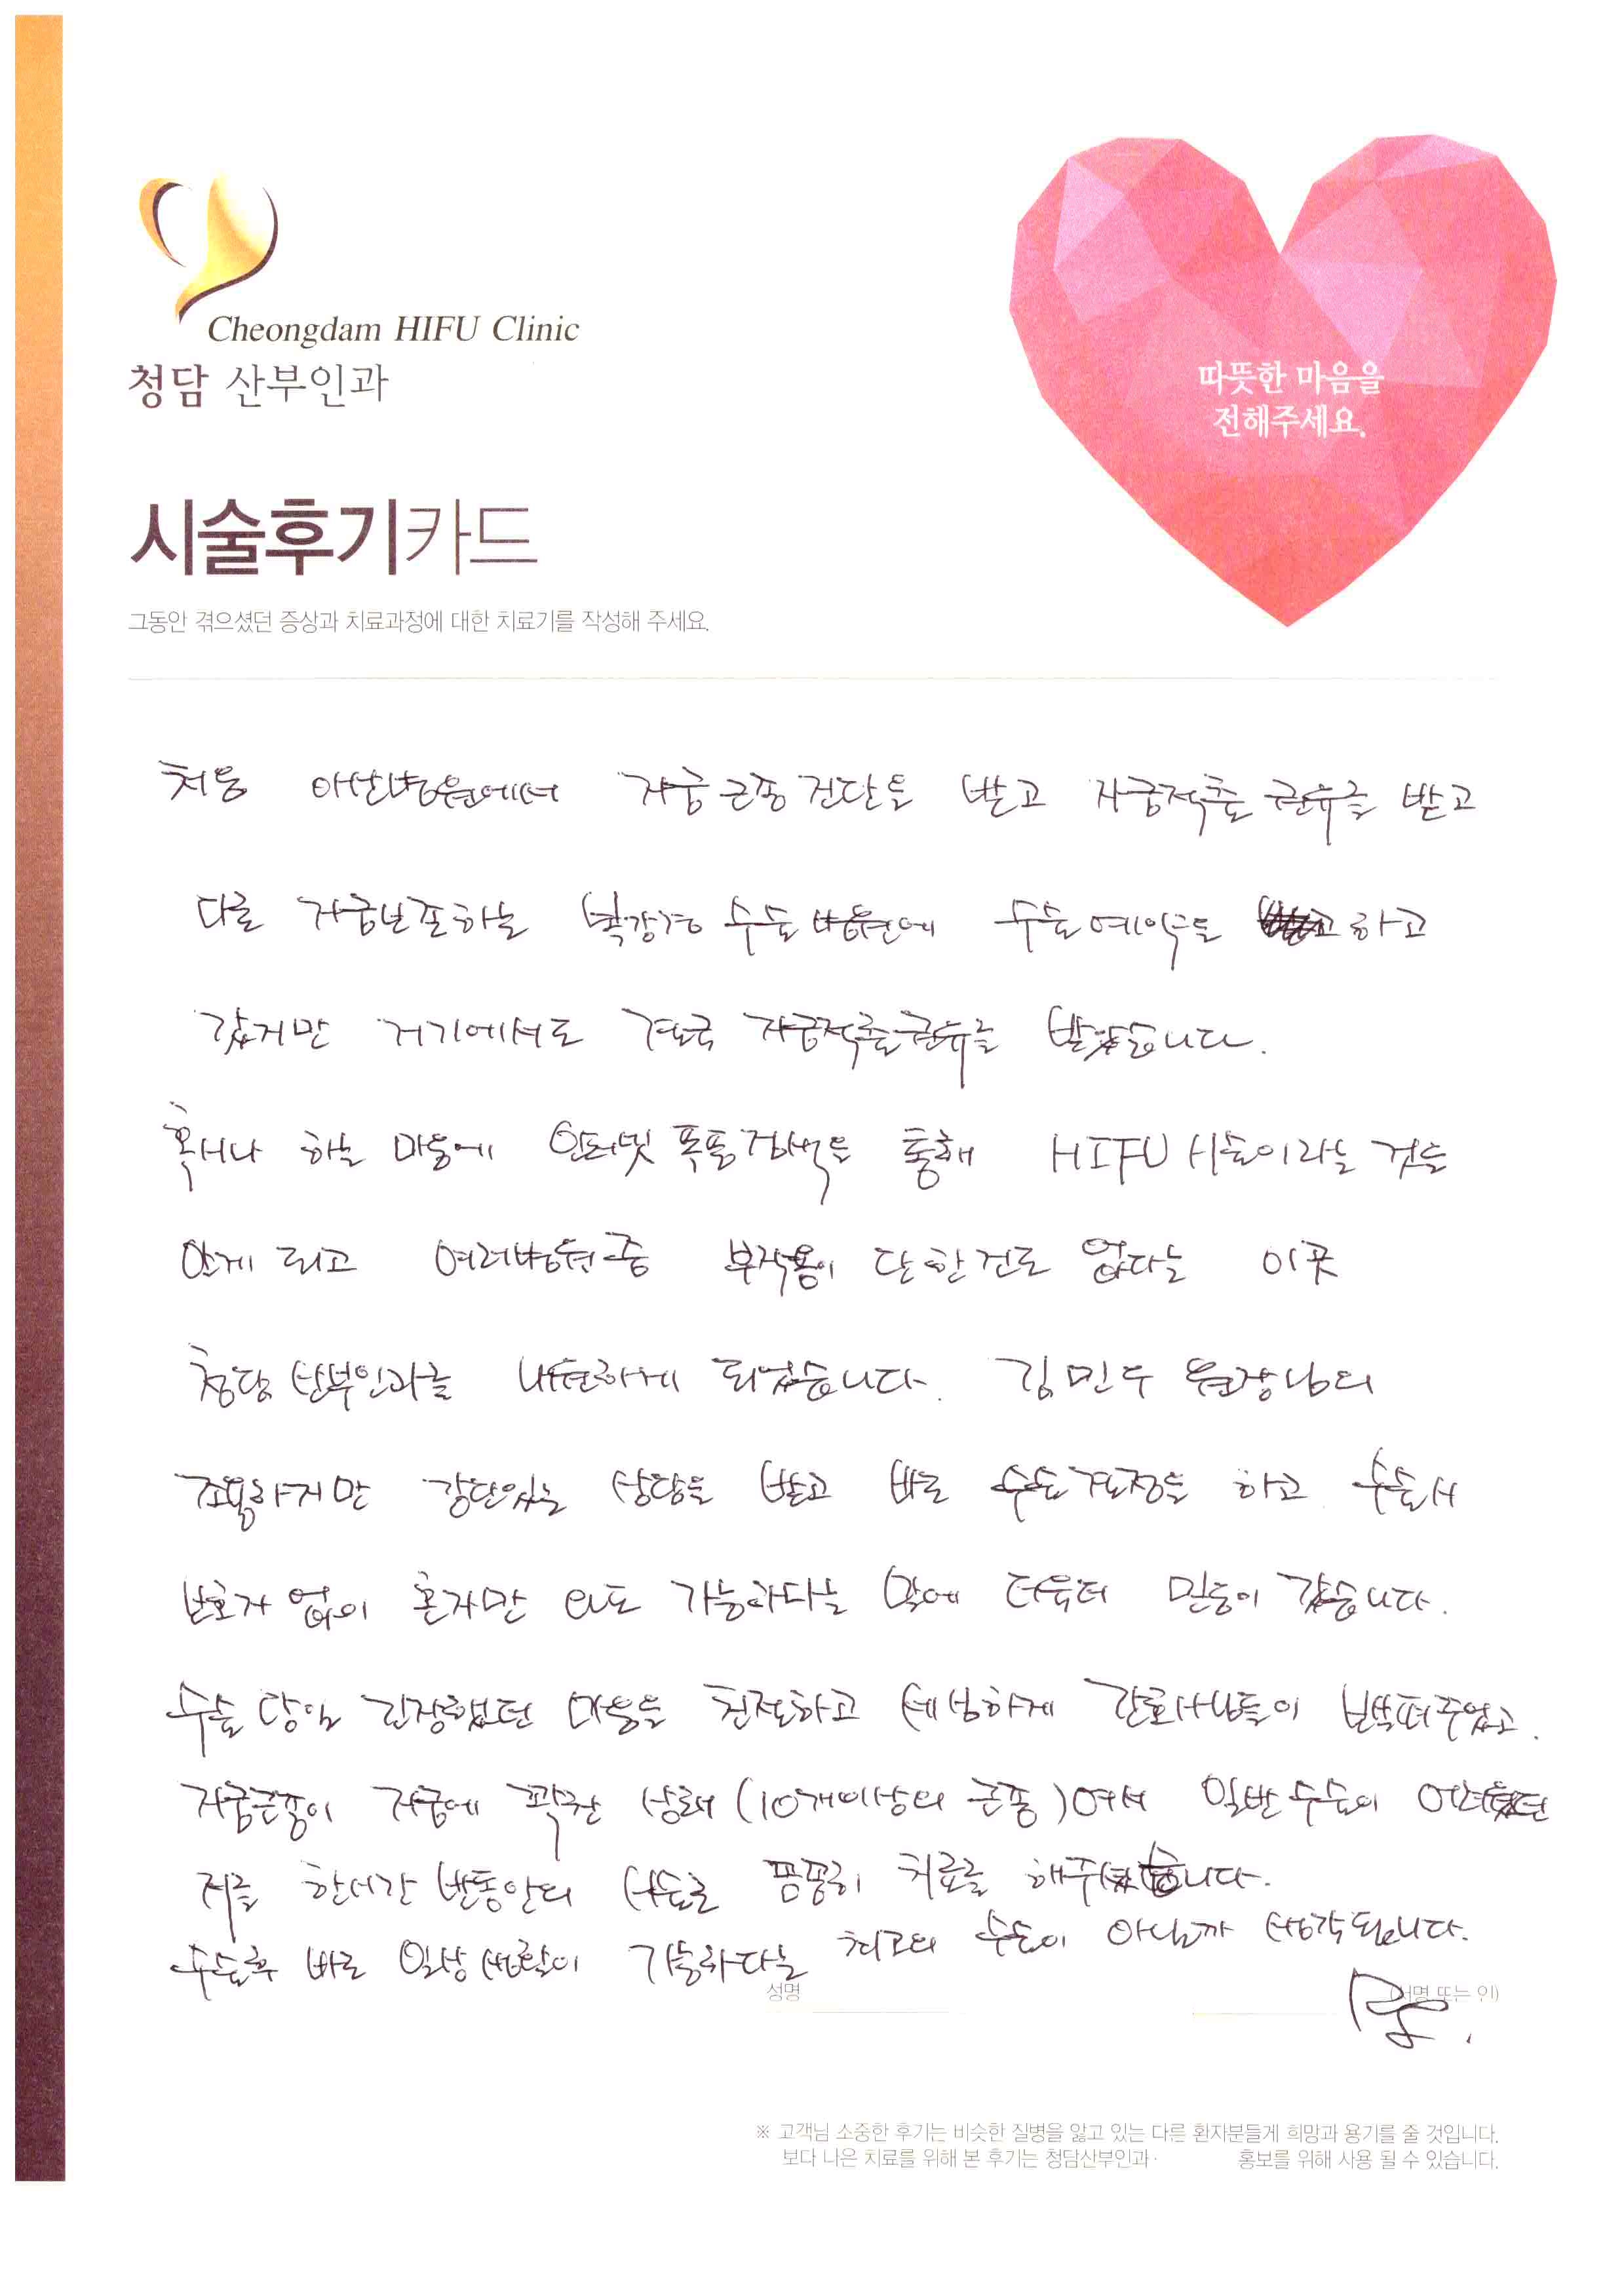 Cheongdam HIFU Clinic
청담 산부인과
따뜻한 마음을
전해주세요.
시술후기카드
그동안 겪으셨던 증상과 치료과정에 대한 치료기를 작성해 주세요.
처음 일반병원에서 자궁근종 진단을 받고 자궁적출 권유를 받고
다른 자궁보존하는 복강경 수술 병원에 수술예약을 하고
갔지만 거기에서도 결국 자궁적출권유를 받았습니다.
혹시나 하는 마음에 인터넷 폭풍검색을 통해 HIFU 시술이라는 것을
알게 되고 여러병원 중 부작용이 단 한건도 없다는 이곳
청담 산부인과를 내원하게 되었습니다. 김민우 원장님의
조용하지만 강단있는 상담을 받고 바로 수술결정을 하고 수술시
보호자 없이 혼자만 와도 가능하다는 말에 더욱더 믿음이 갔습니다.
수술 당일 긴장했던 마음을 친절하고 세심하게 간호사님들이 보살펴주었고.
자궁근종이 자궁에 꽉찬 상태 (10개이상의 근종)여서 일반수술이 어려웠던
저를 한시간 반동안의 시술로 꼼꼼히 치료를 해주셨습니다.
수술후 바로 일상생활이 가능하다는 최고의 수술이 아닐까 생각됩니다.
성명 (서명 또는 인)
※ 고객님 소중한 후기는 비슷한 질병을 앓고 있는 다른 환자분들게 희망과 용기를 줄 것입니다.
보다 나은 치료를 위해 본 후기는 청담산부인과· 홍보를 위해 사용 될 수 있습니다.